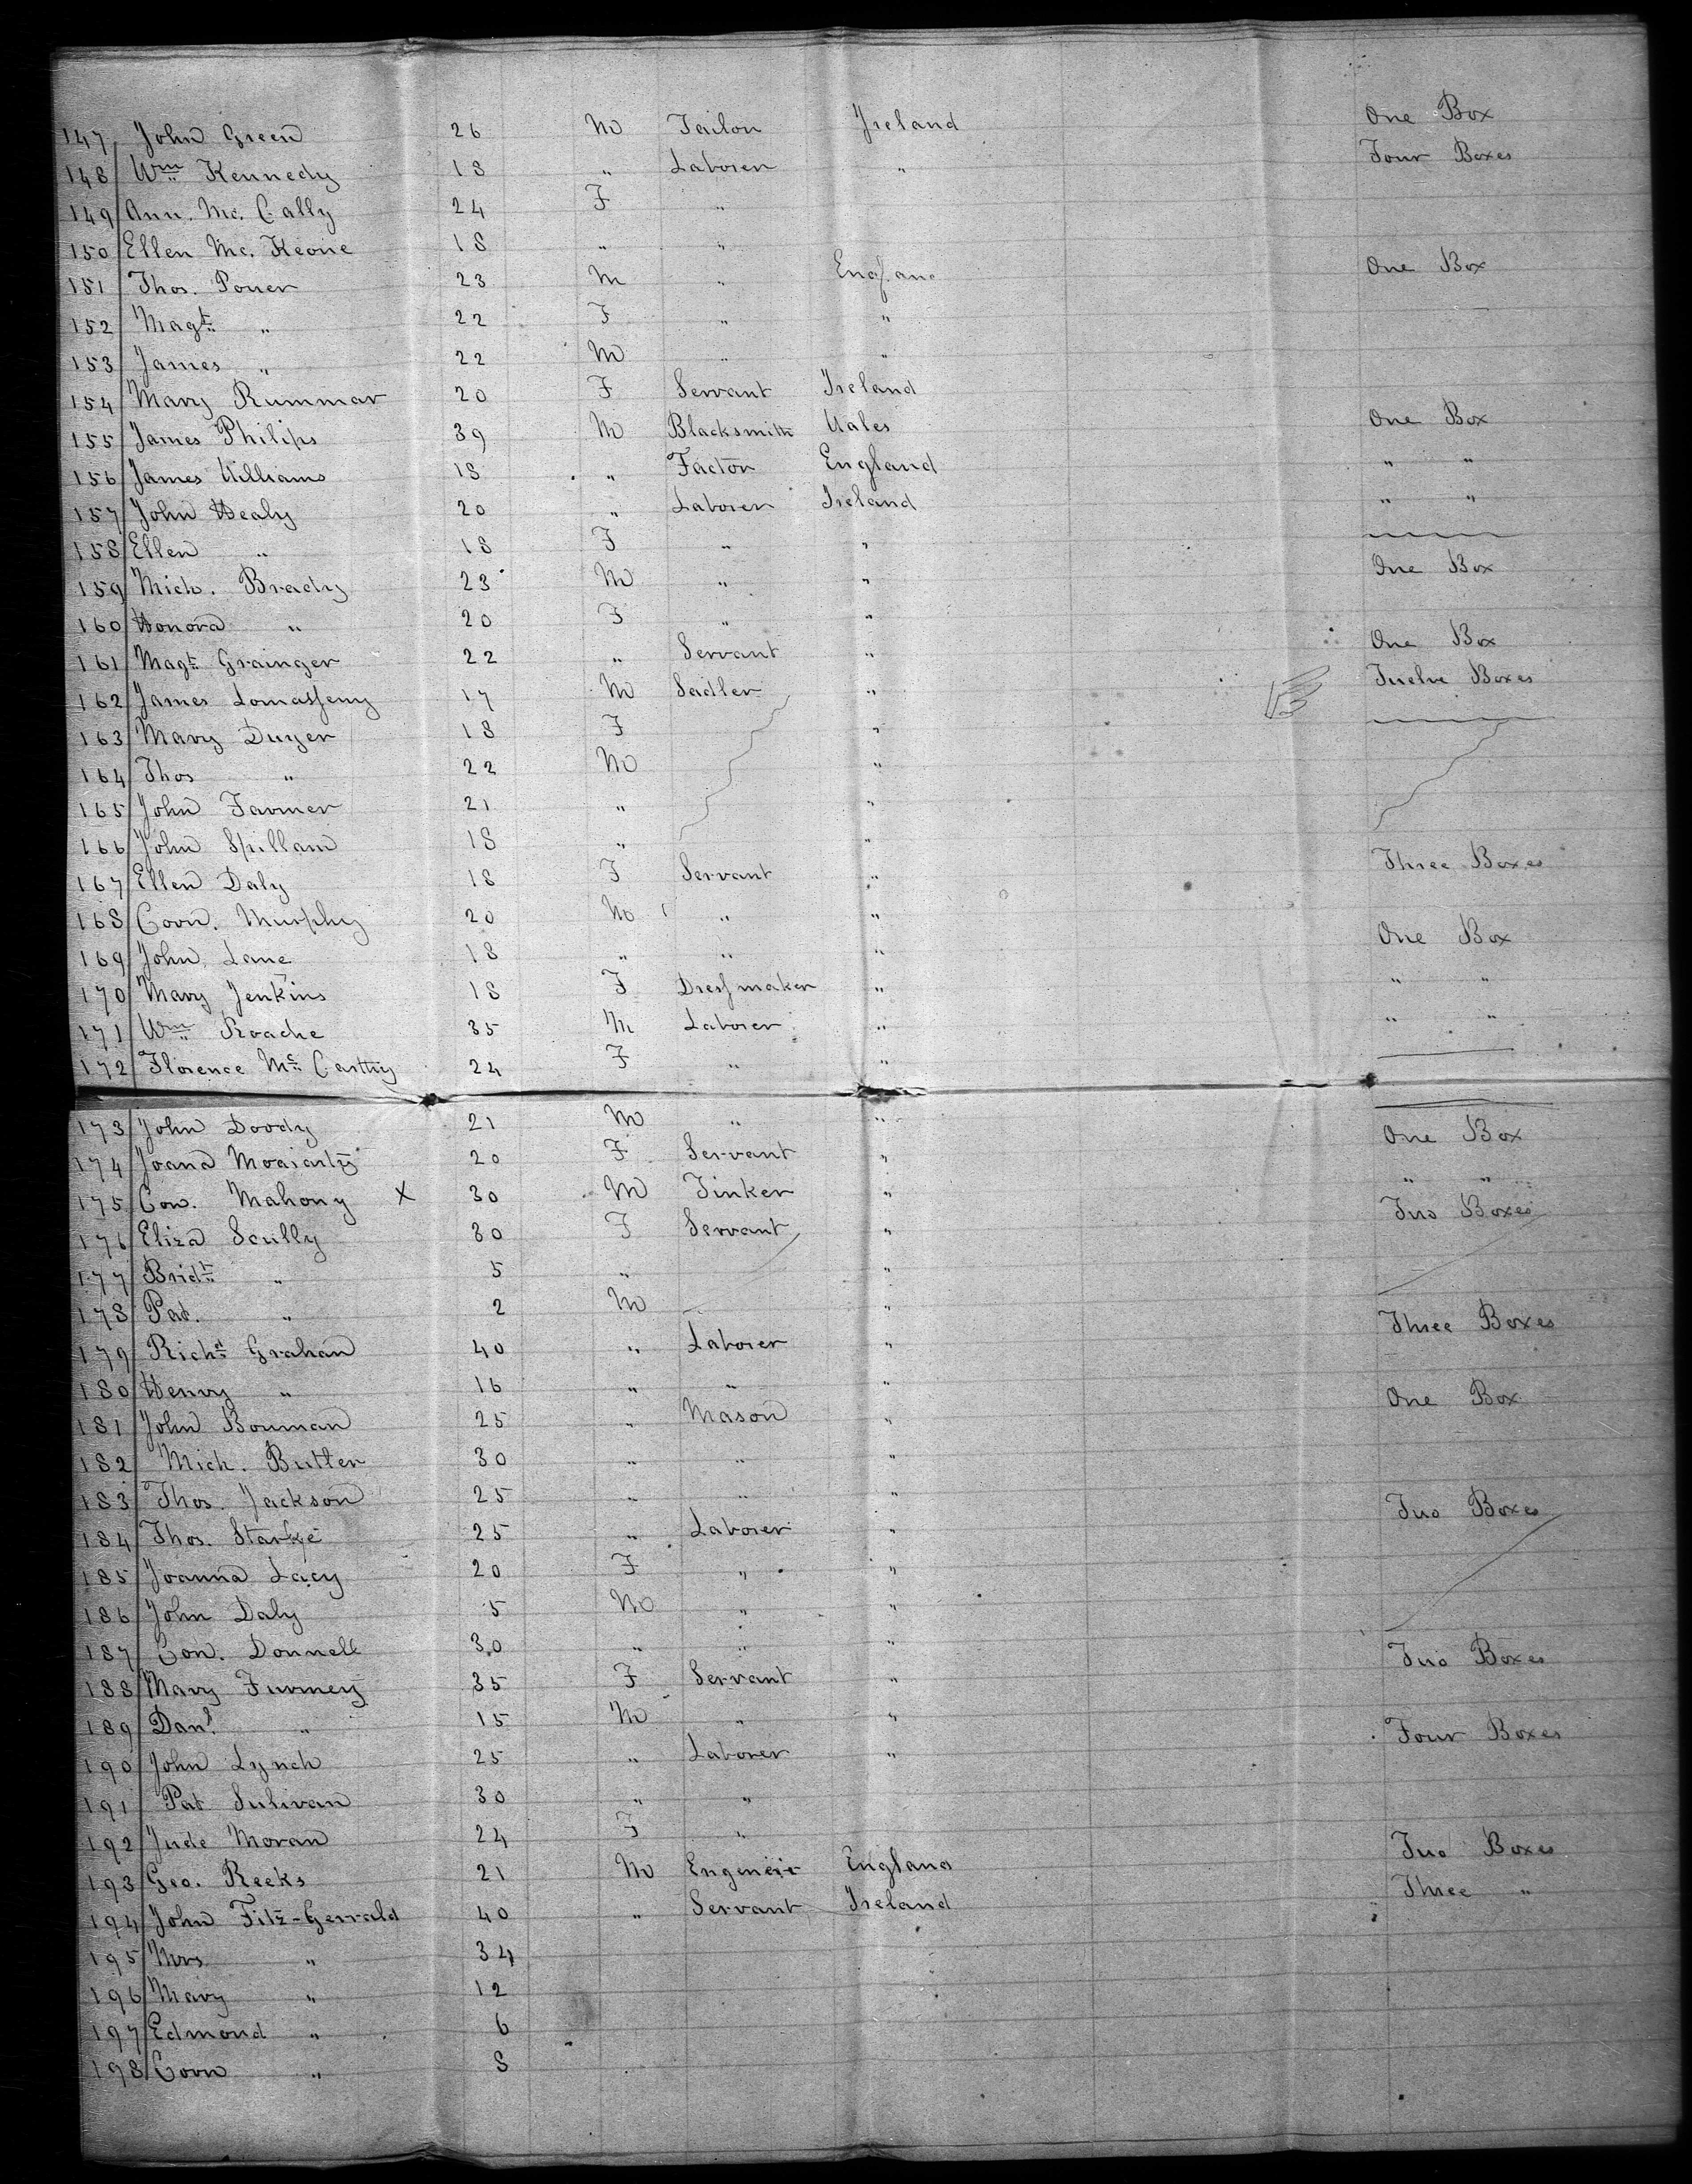 147 John Green 26 M Tailor Ireland One Box
148 Wm Kennedy 18 " Laborer " Four Boxes
149 Ann. Mc. Cally 24 F "
150 Ellen Mc. Keone 18 " "
151 Thos. Power 23 M " England One Box
152 Magt " 22 F " "
153 James " 22 M " "
154 Mary Rummar 20 F Servant Ireland
155 James Philips 39 M Blacksmith Wales One Box
156 James Williams 18 " Factor England " "
157 John Healy 20 " Laborer Ireland " "
158 Ellen " 18 F " "
159 Mich. Brady 23 M " " One Box
160 Honora " 20 F " "
161 Magt Grainger 22 " Servant " One Box
162 James Lomasseny 17 M Sadler " Twelve Boxes
163 Mary Dwyer 18 F "
164 Thos " 22 M "
165 John Farmer 21 " "
166 John Spillam 18 " "
167 Ellen Daly 18 F Servant " Three Boxes
168 Corn. Murphy 20 M " "
169 John Lane 18 " " " One Box
170 Mary Jenkins 18 F Dressmaker " " "
171 Wm Roache 35 M Laborer " " "
172 Florence Mc Carthy 24 F " "
173 John Doody 21 M " "
174 Joana Moriarty 20 F Servant " One Box
175 Con. Mahony X 30 M Tinker " " "
176 Eliza Scully 30 F Servant " Two Boxes
177 Bridt " 5 " "
178 Pat. " 2 M "
179 Richd Grahan 40 " Laborer " Three Boxes
180 Henry " 16 " " "
181 John Bowman 25 " Mason " One Box
182 Mich. Butler 30 " " "
183 Thos. Jackson 25 " " "
184 Thos. Starke 25 " Laborer " Two Boxes
185 Joanna Lacy 20 F " "
186 John Daly 5 M " "
187 Con. Donnell 30 " " "
188 Mary Furmey 35 F Servant " Two Boxes
189 Danl " 15 M " "
190 John Lynch 25 " Laborer " Four Boxes
191 Pat Sulivan 30 " "
192 Jude Moran 24 F "
193 Geo. Reeks 21 M Engineir England Two Boxes
194 John Fitz-Gerrald 40 " Servant Ireland Three "
195 Mrs " 34
196 Mary " 12
197 Edmond " 6
198 Corn " 8